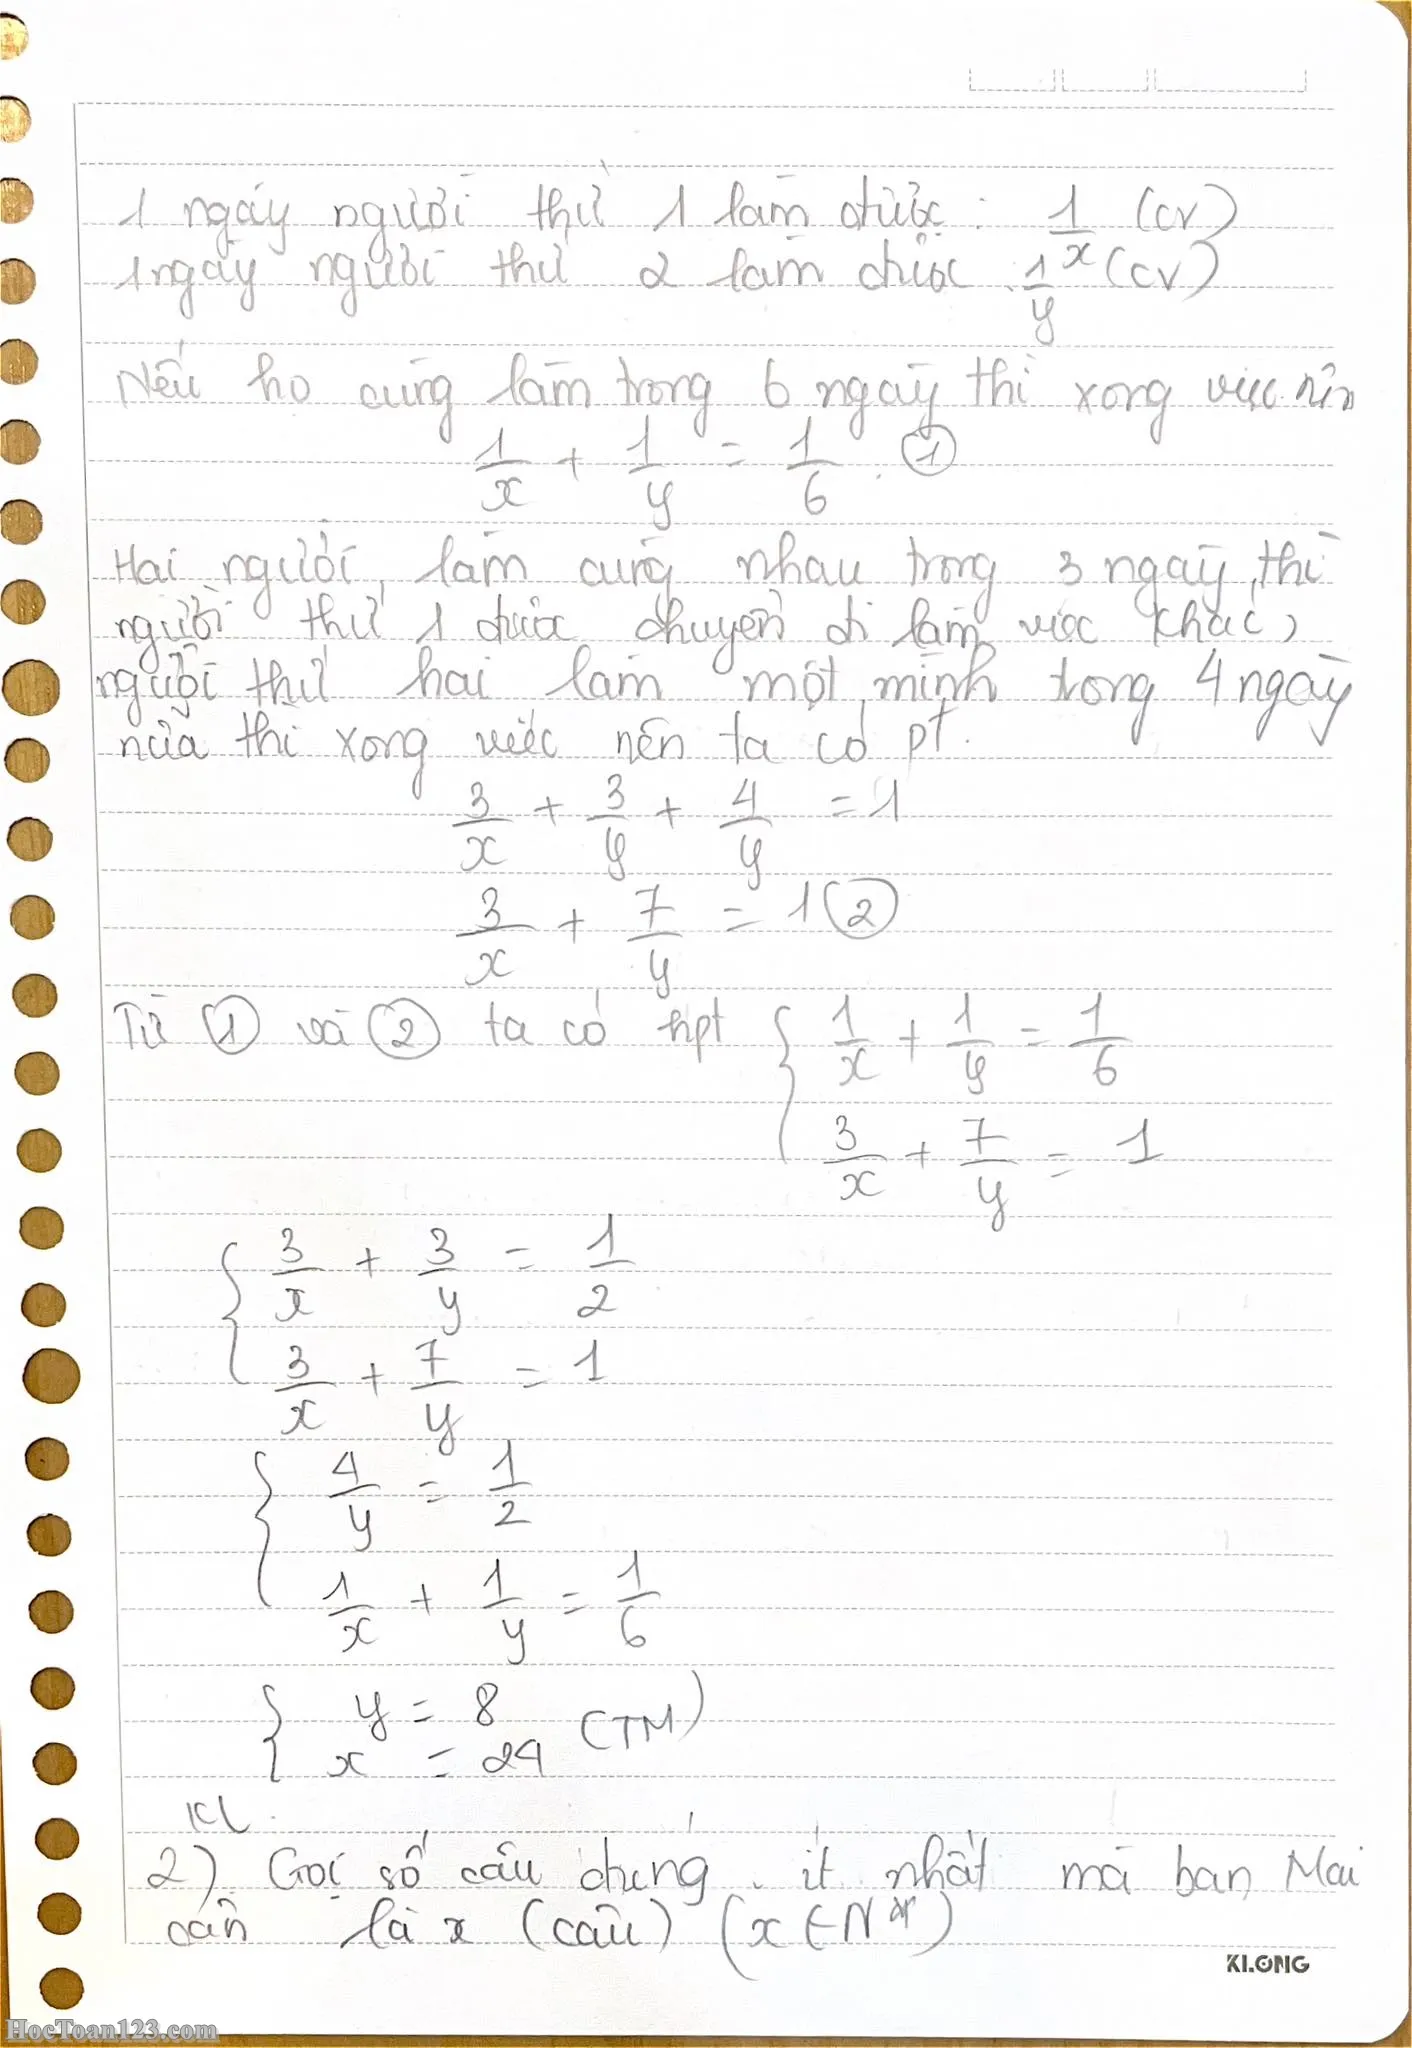 1 ngày người thứ 1 làm được: 1/x (cv)
1 ngày người thứ 2 làm được: 1/y (cv)
Nếu họ cùng làm trong 6 ngày thì xong việc nên
1/x + 1/y = 1/6 . ①
Hai người làm cùng nhau trong 3 ngày, thì
người thứ 1 được chuyển đi làm việc khác,
người thứ hai làm một mình trong 4 ngày
nữa thì xong việc nên ta có pt.
3/x + 3/y + 4/y = 1
3/x + 7/y = 1 ②
Từ ① và ② ta có hpt { 1/x + 1/y = 1/6
3/x + 7/y = 1
{ 3/x + 3/y = 1/2
3/x + 7/y = 1
{ 4/y = 1/2
1/x + 1/y = 1/6
{ y = 8
x = 24 (TM)
KL.
2) Gọi số câu đúng ít nhất mà bạn Mai
cần là x (câu) (x ∈ N*)
KLONG
HocToan123.com